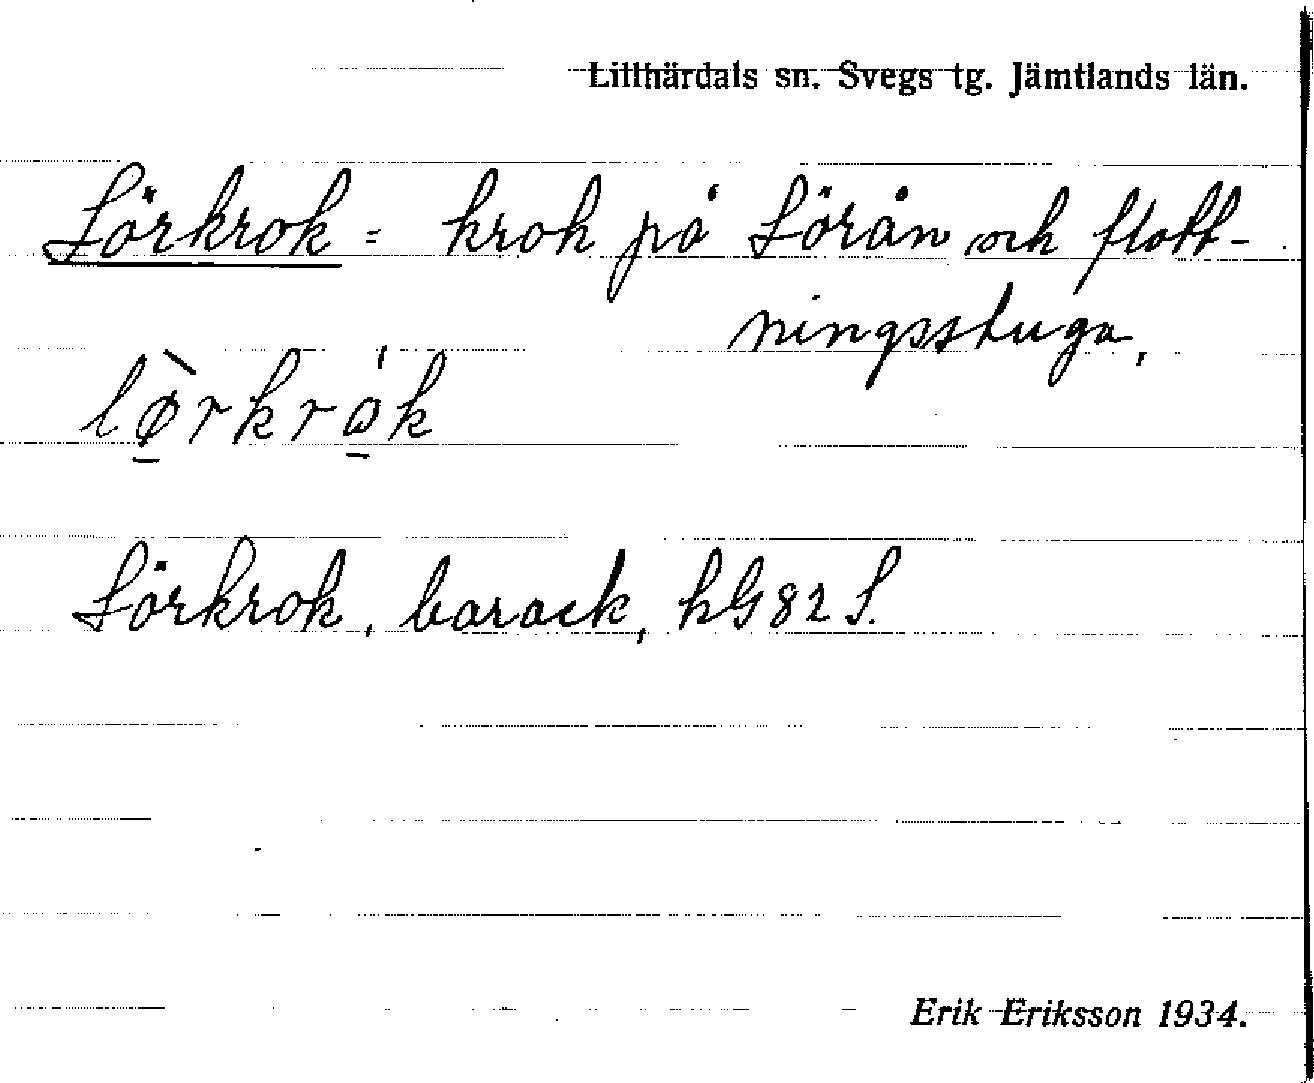 Lillhärdals sn. Svegs tg. Jämtlands län.
Lörkrok = krok på Lörån och flott-
ningsstuga,
lø̱̀rkrώ̱k
Lörkrok, barack, hG82 S.
Erik Eriksson 1934.